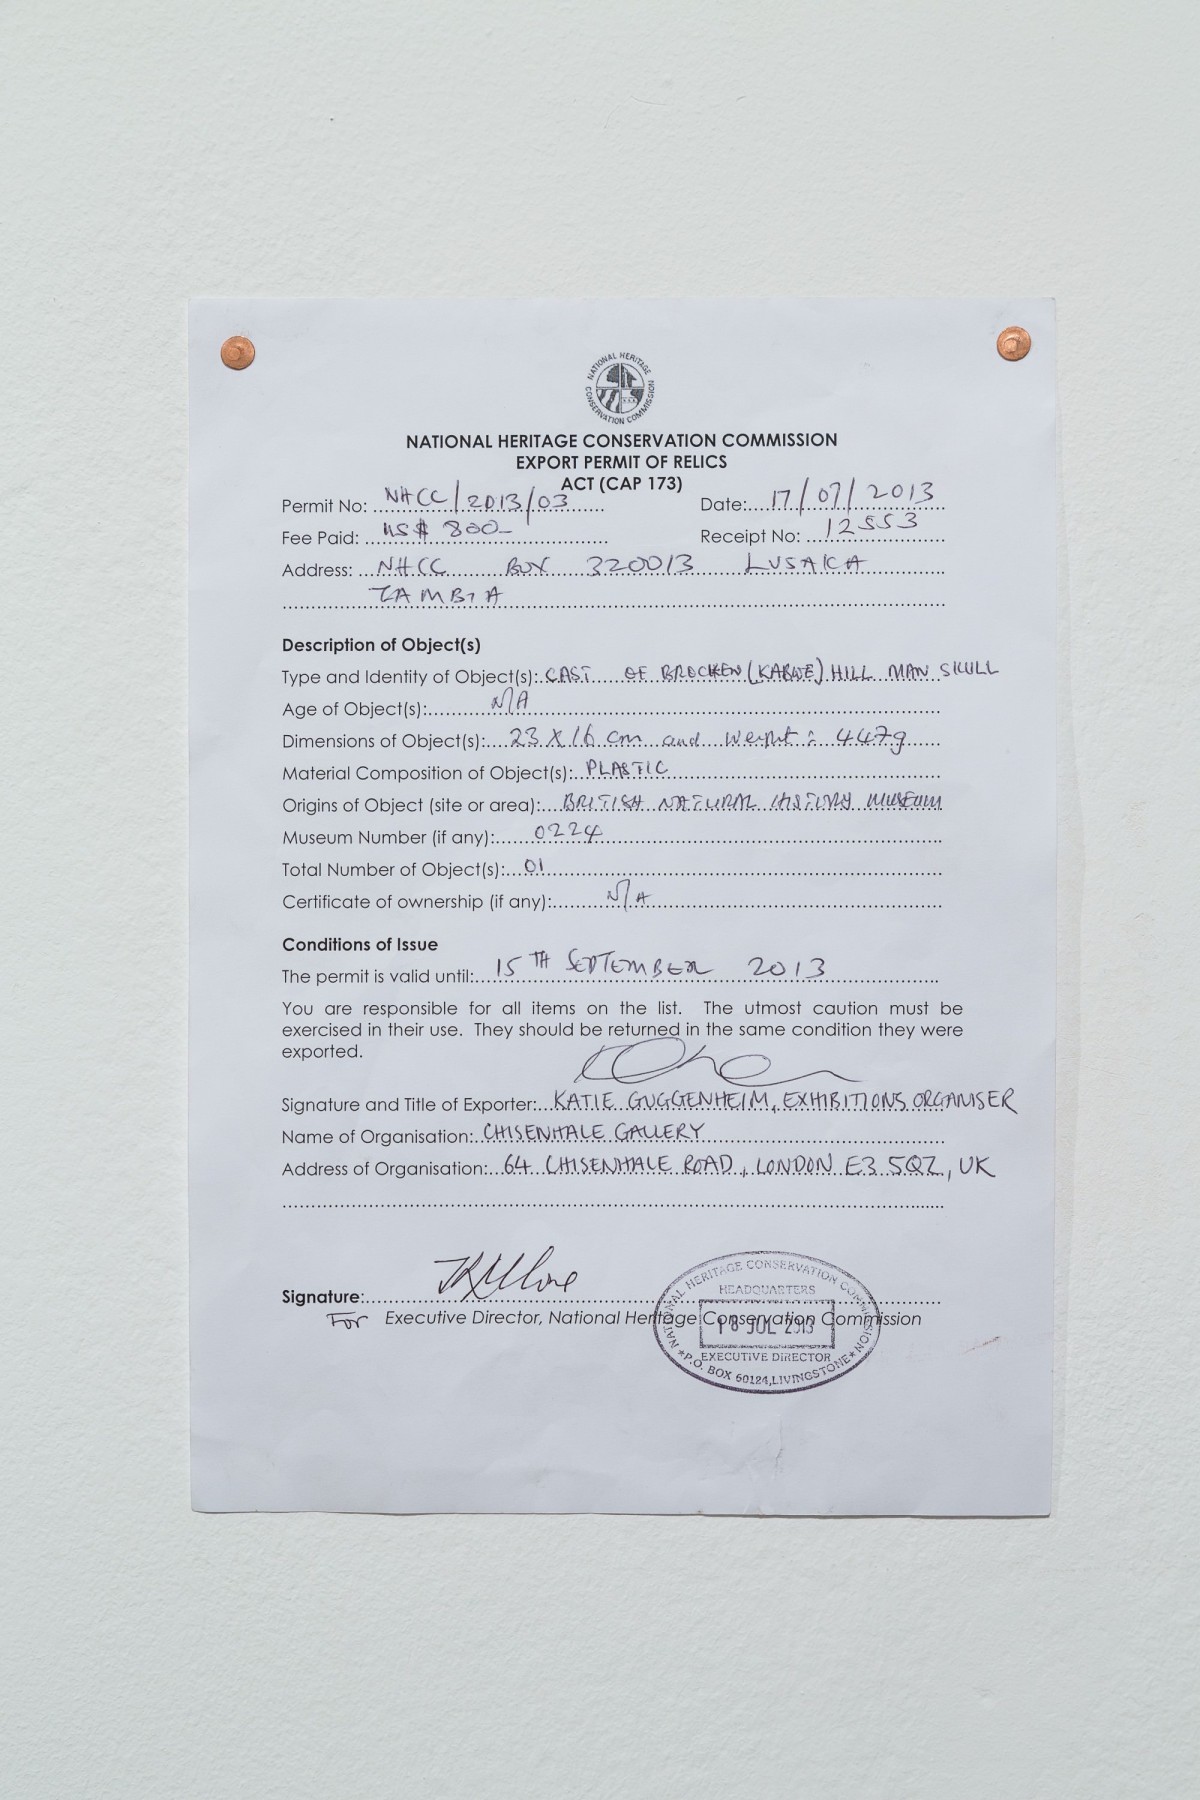 NATIONAL HERITAGE CONSERVATION COMMISSION
NATIONAL HERITAGE CONSERVATION COMMISSION
EXPORT PERMIT OF RELICS
ACT (CAP 173)
Permit No: NHCC/2013/03 Date: 17/07/2013
Fee Paid: US$ 800- Receipt No: 12553
Address: NHCC BOX 320013 LUSAKA
ZAMBIA
Description of Object(s)
Type and Identity of Object(s): CAST OF BROCKEN (KABWE) HILL MAN SKULL
Age of Object(s): N/A
Dimensions of Object(s): 23 X 16 cm and weight: 447g
Material Composition of Object(s): PLASTIC
Origins of Object (site or area): BRITISH NATURAL HISTORY MUSEUM
Museum Number (if any): 0224
Total Number of Object(s): 01
Certificate of ownership (if any): N/A
Conditions of Issue
The permit is valid until: 15TH SEPTEMBER 2013
You are responsible for all items on the list. The utmost caution must be
exercised in their use. They should be returned in the same condition they were
exported.
Signature and Title of Exporter: KATIE GUGGENHEIM, EXHIBITIONS ORGANISER
Name of Organisation: CHISENHALE GALLERY
Address of Organisation: 64 CHISENHALE ROAD, LONDON E3 5QZ, UK
Signature:
For Executive Director, National Heritage Conservation Commission
NATIONAL HERITAGE CONSERVATION COMMISSION
HEADQUARTERS
18 JUL 2013
EXECUTIVE DIRECTOR
*P.O. BOX 60124, LIVINGSTONE*